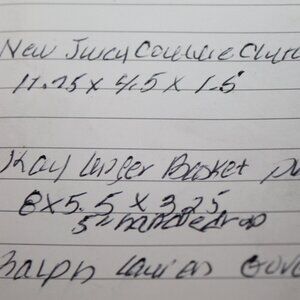 New Juicy Couture Clutch
11.75 x 4.5 x 1.5
Kay Unger Basket
8 x 5.5 x 3.25
5" handle drop
Ralph Lauren